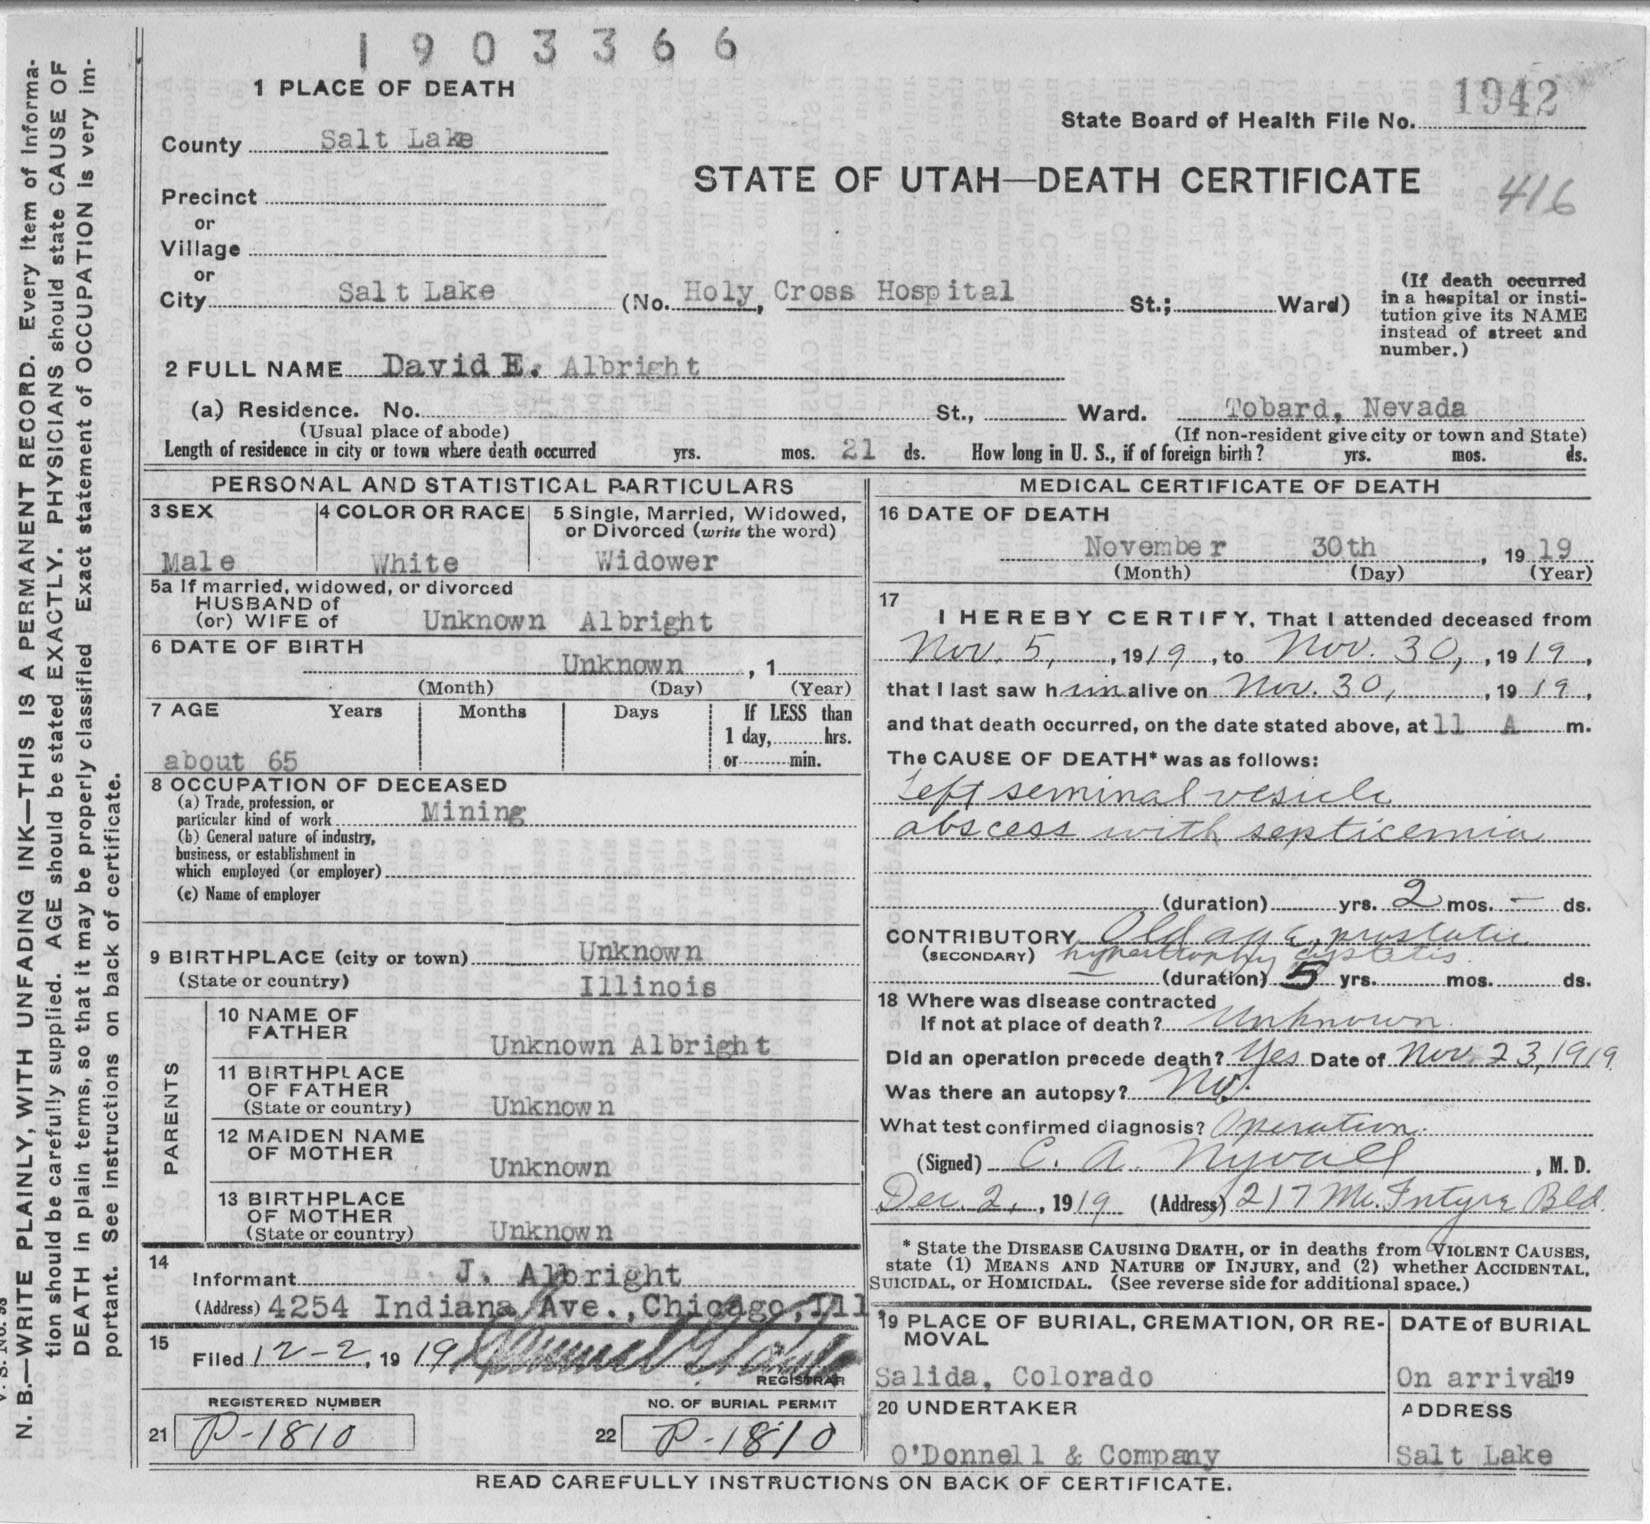 1903366
1 PLACE OF DEATH
1942
State Board of Health File No.
County Salt Lake
STATE OF UTAH—DEATH CERTIFICATE
416
Precinct
or
Village
or
City Salt Lake (No. Holy Cross Hospital St.; Ward)
(If death occurred
in a hospital or insti-
tution give its NAME
instead of street and
number.)
2 FULL NAME David E. Albright
(a) Residence. No. St., Ward. Tobard, Nevada
(Usual place of abode) (If non-resident give city or town and State)
Length of residence in city or town where death occurred yrs. mos. 21 ds. How long in U. S., if of foreign birth? yrs. mos. ds.
PERSONAL AND STATISTICAL PARTICULARS
3 SEX
Male
4 COLOR OR RACE
White
5 Single, Married, Widowed,
or Divorced (write the word)
Widower
5a If married, widowed, or divorced
HUSBAND of
(or) WIFE of Unknown Albright
6 DATE OF BIRTH
Unknown , 1
(Month) (Day) (Year)
7 AGE Years Months Days If LESS than
1 day, hrs.
about 65 or min.
8 OCCUPATION OF DECEASED
(a) Trade, profession, or
particular kind of work Mining
(b) General nature of industry,
business, or establishment in
which employed (or employer)
(c) Name of employer
9 BIRTHPLACE (city or town) Unknown
(State or country) Illinois
PARENTS
10 NAME OF
FATHER Unknown Albright
11 BIRTHPLACE
OF FATHER
(State or country) Unknown
12 MAIDEN NAME
OF MOTHER
Unknown
13 BIRTHPLACE
OF MOTHER
(State or country) Unknown
14
Informant J. Albright
(Address) 4254 Indiana Ave., Chicago, Ill.
15
Filed 12-2, 1919
REGISTRAR
REGISTERED NUMBER
21 P-1810
NO. OF BURIAL PERMIT
22 P-1810
MEDICAL CERTIFICATE OF DEATH
16 DATE OF DEATH
November 30th , 1919
(Month) (Day) (Year)
17
I HEREBY CERTIFY, That I attended deceased from
Nov. 5, , 1919 , to Nov. 30, , 1919 ,
that I last saw him alive on Nov. 30, , 1919 ,
and that death occurred, on the date stated above, at 11 A m.
The CAUSE OF DEATH* was as follows:
Left seminal vesicle
abscess with septicemia
(duration) yrs. 2 mos. - ds.
CONTRIBUTORY Old age, prostatic
(SECONDARY) hypertrophy cystitis
(duration) 5 yrs. mos. ds.
18 Where was disease contracted
If not at place of death? Unknown
Did an operation precede death? Yes Date of Nov. 23, 1919
Was there an autopsy? No.
What test confirmed diagnosis? Operation.
(Signed) C. A. Nyvall , M. D.
Dec. 2, , 1919 (Address) 217 Mc.Intyre Bld.
* State the DISEASE CAUSING DEATH, or in deaths from VIOLENT CAUSES,
state (1) MEANS AND NATURE OF INJURY, and (2) whether ACCIDENTAL,
SUICIDAL, or HOMICIDAL. (See reverse side for additional space.)
19 PLACE OF BURIAL, CREMATION, OR RE-
MOVAL
Salida, Colorado
DATE of BURIAL
On arrival 19
20 UNDERTAKER
O'Donnell & Company
ADDRESS
Salt Lake
READ CAREFULLY INSTRUCTIONS ON BACK OF CERTIFICATE.
N. B.—WRITE PLAINLY, WITH UNFADING INK—THIS IS A PERMANENT RECORD. Every item of informa-
tion should be carefully supplied. AGE should be stated EXACTLY. PHYSICIANS should state CAUSE OF
DEATH in plain terms, so that it may be properly classified Exact statement of OCCUPATION is very im-
portant. See instructions on back of certificate.